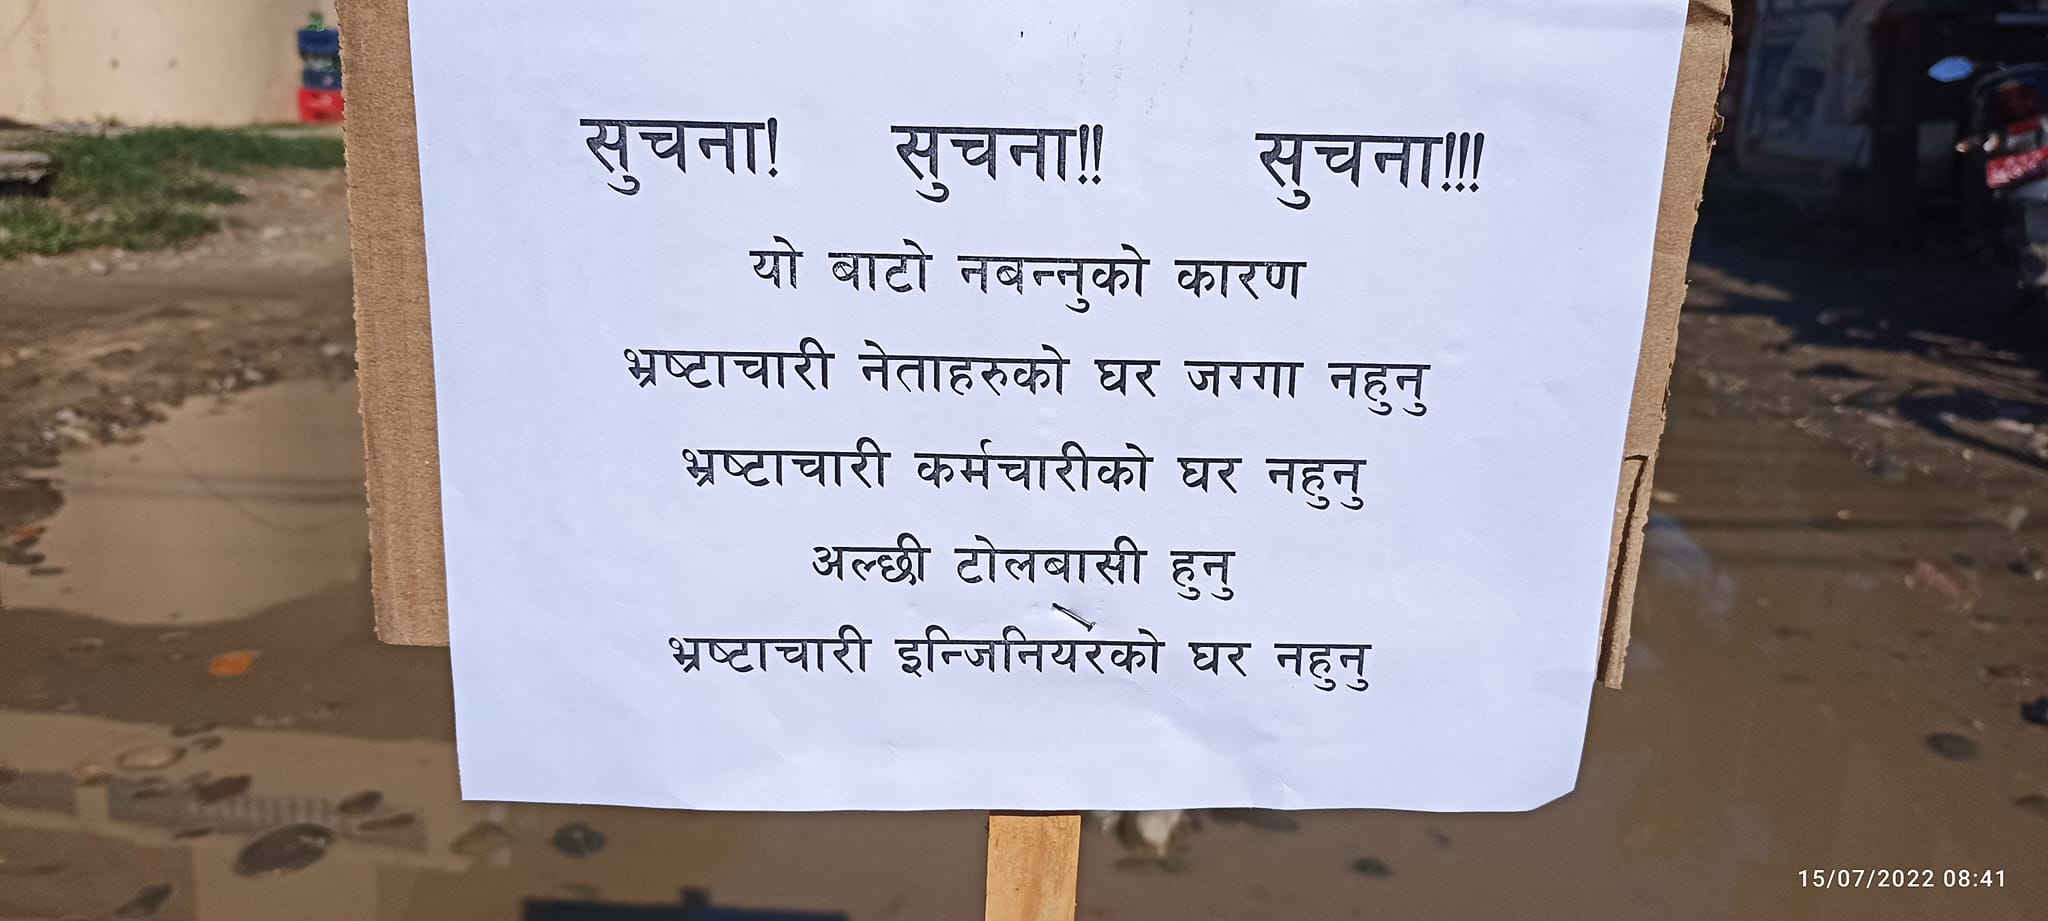 सुचना! सुचना!! सुचना!!!
यो बाटो नबन्नुको कारण
भ्रष्टाचारी नेताहरुको घर जग्गा नहुनु
भ्रष्टाचारी कर्मचारीको घर नहुनु
अल्छी टोलबासी हुनु
भ्रष्टाचारी इन्जिनियरको घर नहुनु
15/07/2022 08:41